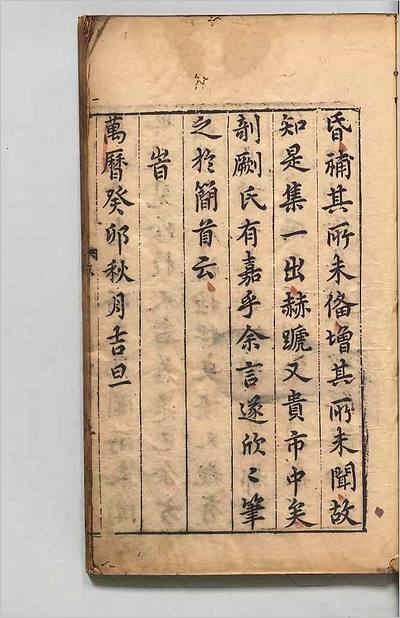 昏補其所未備增其所未聞故
知是集一出赫蹏又貴市中矣
剞劂氏有嘉乎余言遂欣〻筆
之於簡首云
旹
萬曆癸卯秋月吉旦